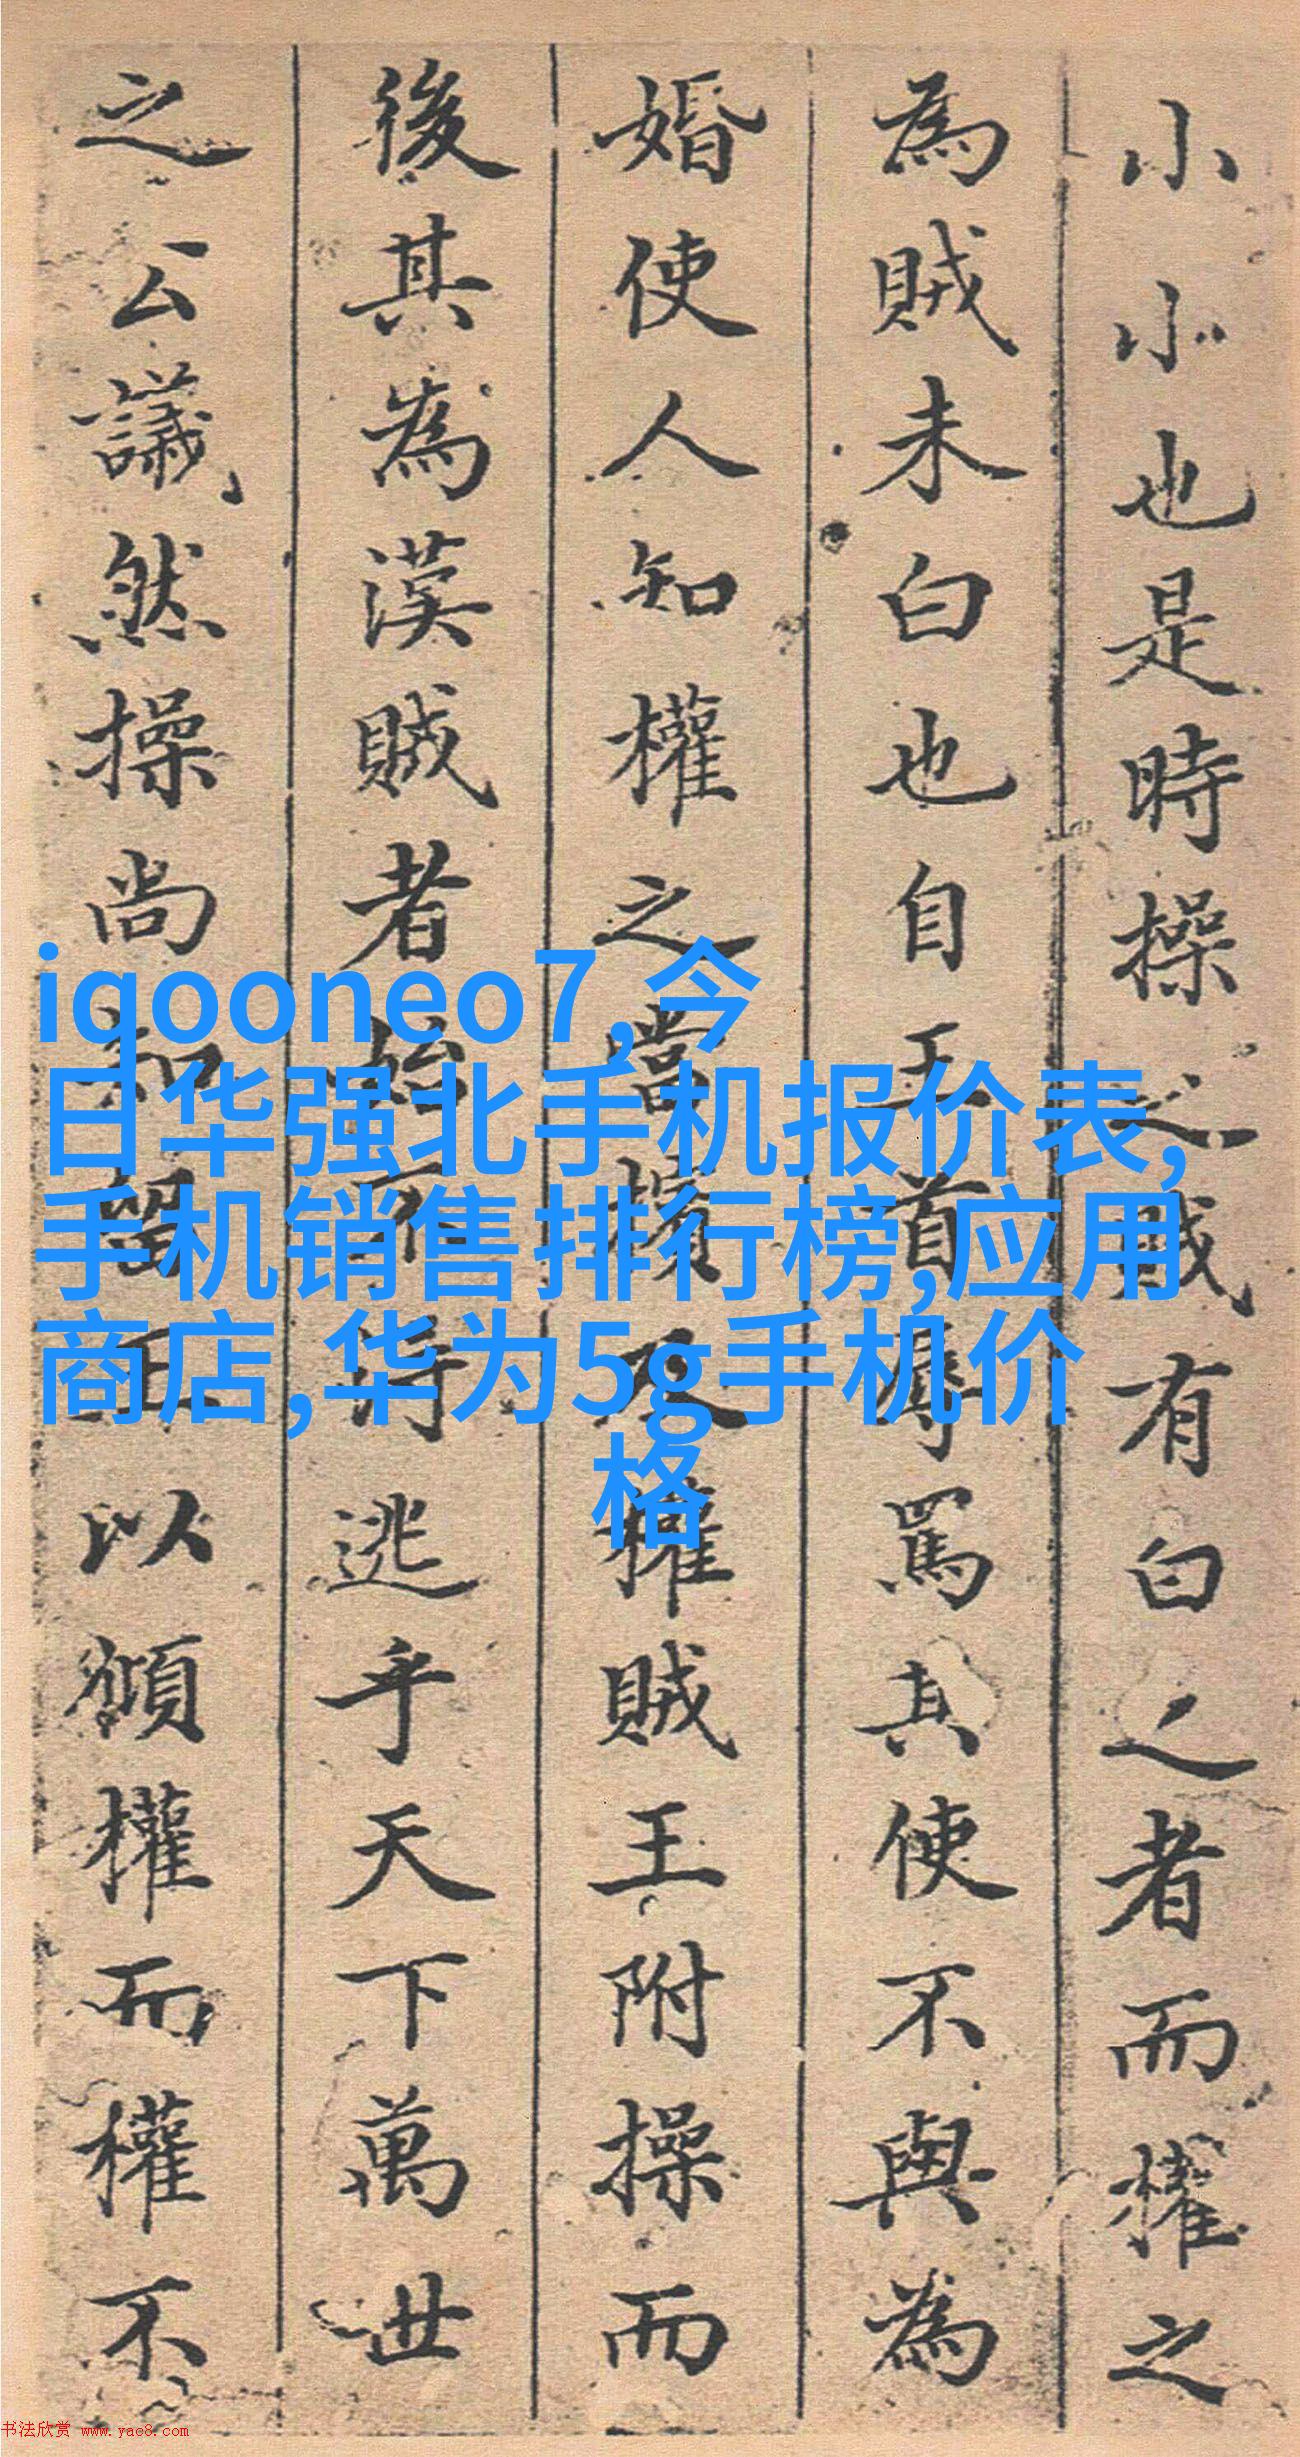 小小也是時操之賊有白之者而權之
為賊未白也自王首辱罵其使不與為
婚使人知權之當擯及權賊王附操而
後其為漢賊者始不得逃乎天下萬世
之公議然操尚知留王以額權而權不
iqooneo7,今
日华强北手机报价表,
手机销售排行榜,应用
商店,华为5g手机价
格
书法欣赏 www.yac8.com